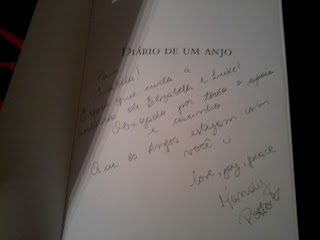 DIÁRIO DE UM ANJO
Para
Isabela!
Espero que curta a
história de Elizabeth e Luke!
Obrigada por todo o apoio
e carinho
Que os Anjos estejam com
você
love, joy, peace
Mandy
Porto